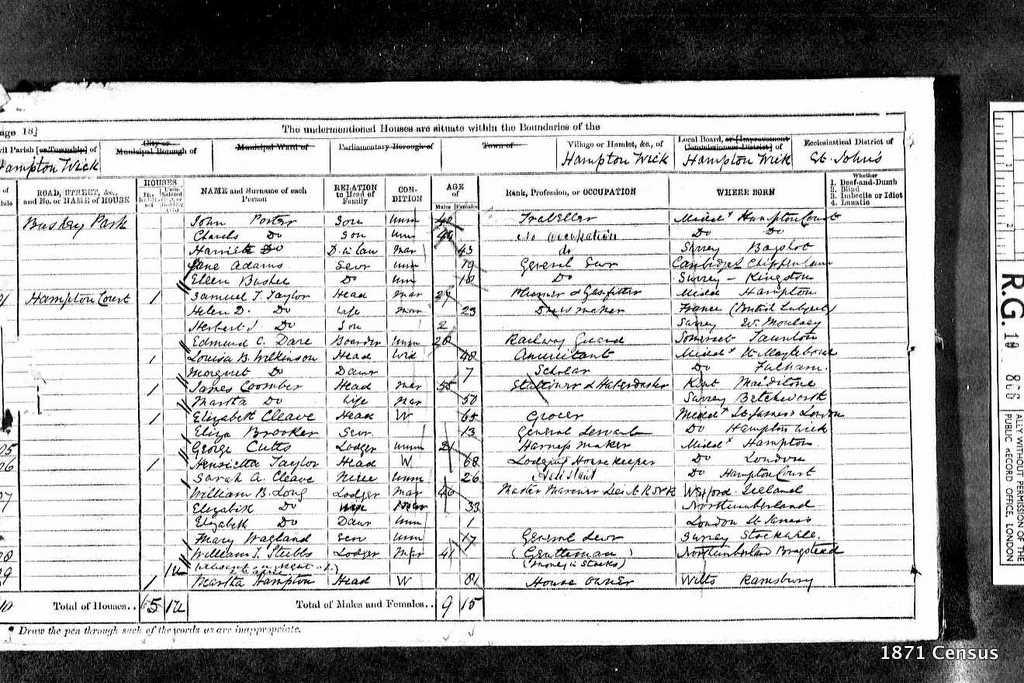 age 18]
The undermentioned Houses are situate within the Boundaries of the
vil Parish [or Township] of
City or Municipal Borough of
Municipal Ward of
Parliamentary Borough of
Town of
Village or Hamlet, &c., of
Local Board, or [Improvement Commissioners District] of
Ecclesiastical District of
Hampton Wick Hampton Wick Hampton Wick St. John's
ROAD, STREET, &c., and No. or NAME of HOUSE
HOUSES
NAME and Surname of each Person
RELATION to Head of Family
CONDITION
AGE of
Males Females
Rank, Profession, or OCCUPATION
WHERE BORN
Whether
1. Deaf-and-Dumb
2. Blind
3. Imbecile or Idiot
4. Lunatic
Bushey Park John Porter Son Unm Traveller Middx Hampton Court
Charles Do Son Unm No occupation Do Do
Harriett Do D in law Mar 43 do Surrey
Jane Adams Serv Unm 19 General Serv Cambridge Chippenham
Eleen Serv Unm 18 Do Surrey Kingston
Hampton Court 1 Samuel T. Taylor Head Mar 29 Plumer & Gasfitter Middx Hampton
Helen D. Do Wife Mar 23 Dress maker France (British Subject)
Herbert J. Do Son 2 Surrey W. Moulsey
Edmund C. Dare Boarder Unm 28 Railway Guard Somerset Taunton
1 Louisa B. Wilkinson Head Wid 48 Annuitant Middx St. Marylebone
Margret Do Daur 7 Scholar Do Fulham
1 James Coomber Head Mar 55 Stationer & Haberdasher Kent Maidstone
Martha Do Wife Mar 50 Surrey Betchworth
1 Elizabeth Cleave Head W 65 Grocer Middx St. James's London
Eliza Brooker Serv 13 General Servant Do Hampton Wick
George Cutts Lodger Unm 21 Harness maker Middx Hampton
1 Henrietta Taylor Head W 68 Lodging House keeper Do London
Sarah A. Cleave Niece Unm 26 Assistant Do Hampton Court
William B. Long Lodger Mar 46 Master Mariner Lieut R.N.R. Wexford Ireland
Elizabeth Do Wife Mar 33 Northumberland
Elizabeth Do Daur Unm 1 London St. James's
Mary Wagland Serv Unm 17 General Serv Surrey
William T. Stubbs Lodger Mar 41 (Gentleman) Northumberland
(Money in Stocks)
1 Martha Hampton Head W 81 House owner Wilts Ramsbury
Total of Houses.. 5 Total of Males and Females.. 9 15
* Draw the pen through such of the words as are inappropriate.
R.G. 10
866
ALLY WITHOUT PERMISSION OF THE
PUBLIC RECORD OFFICE, LONDON
1871 Census